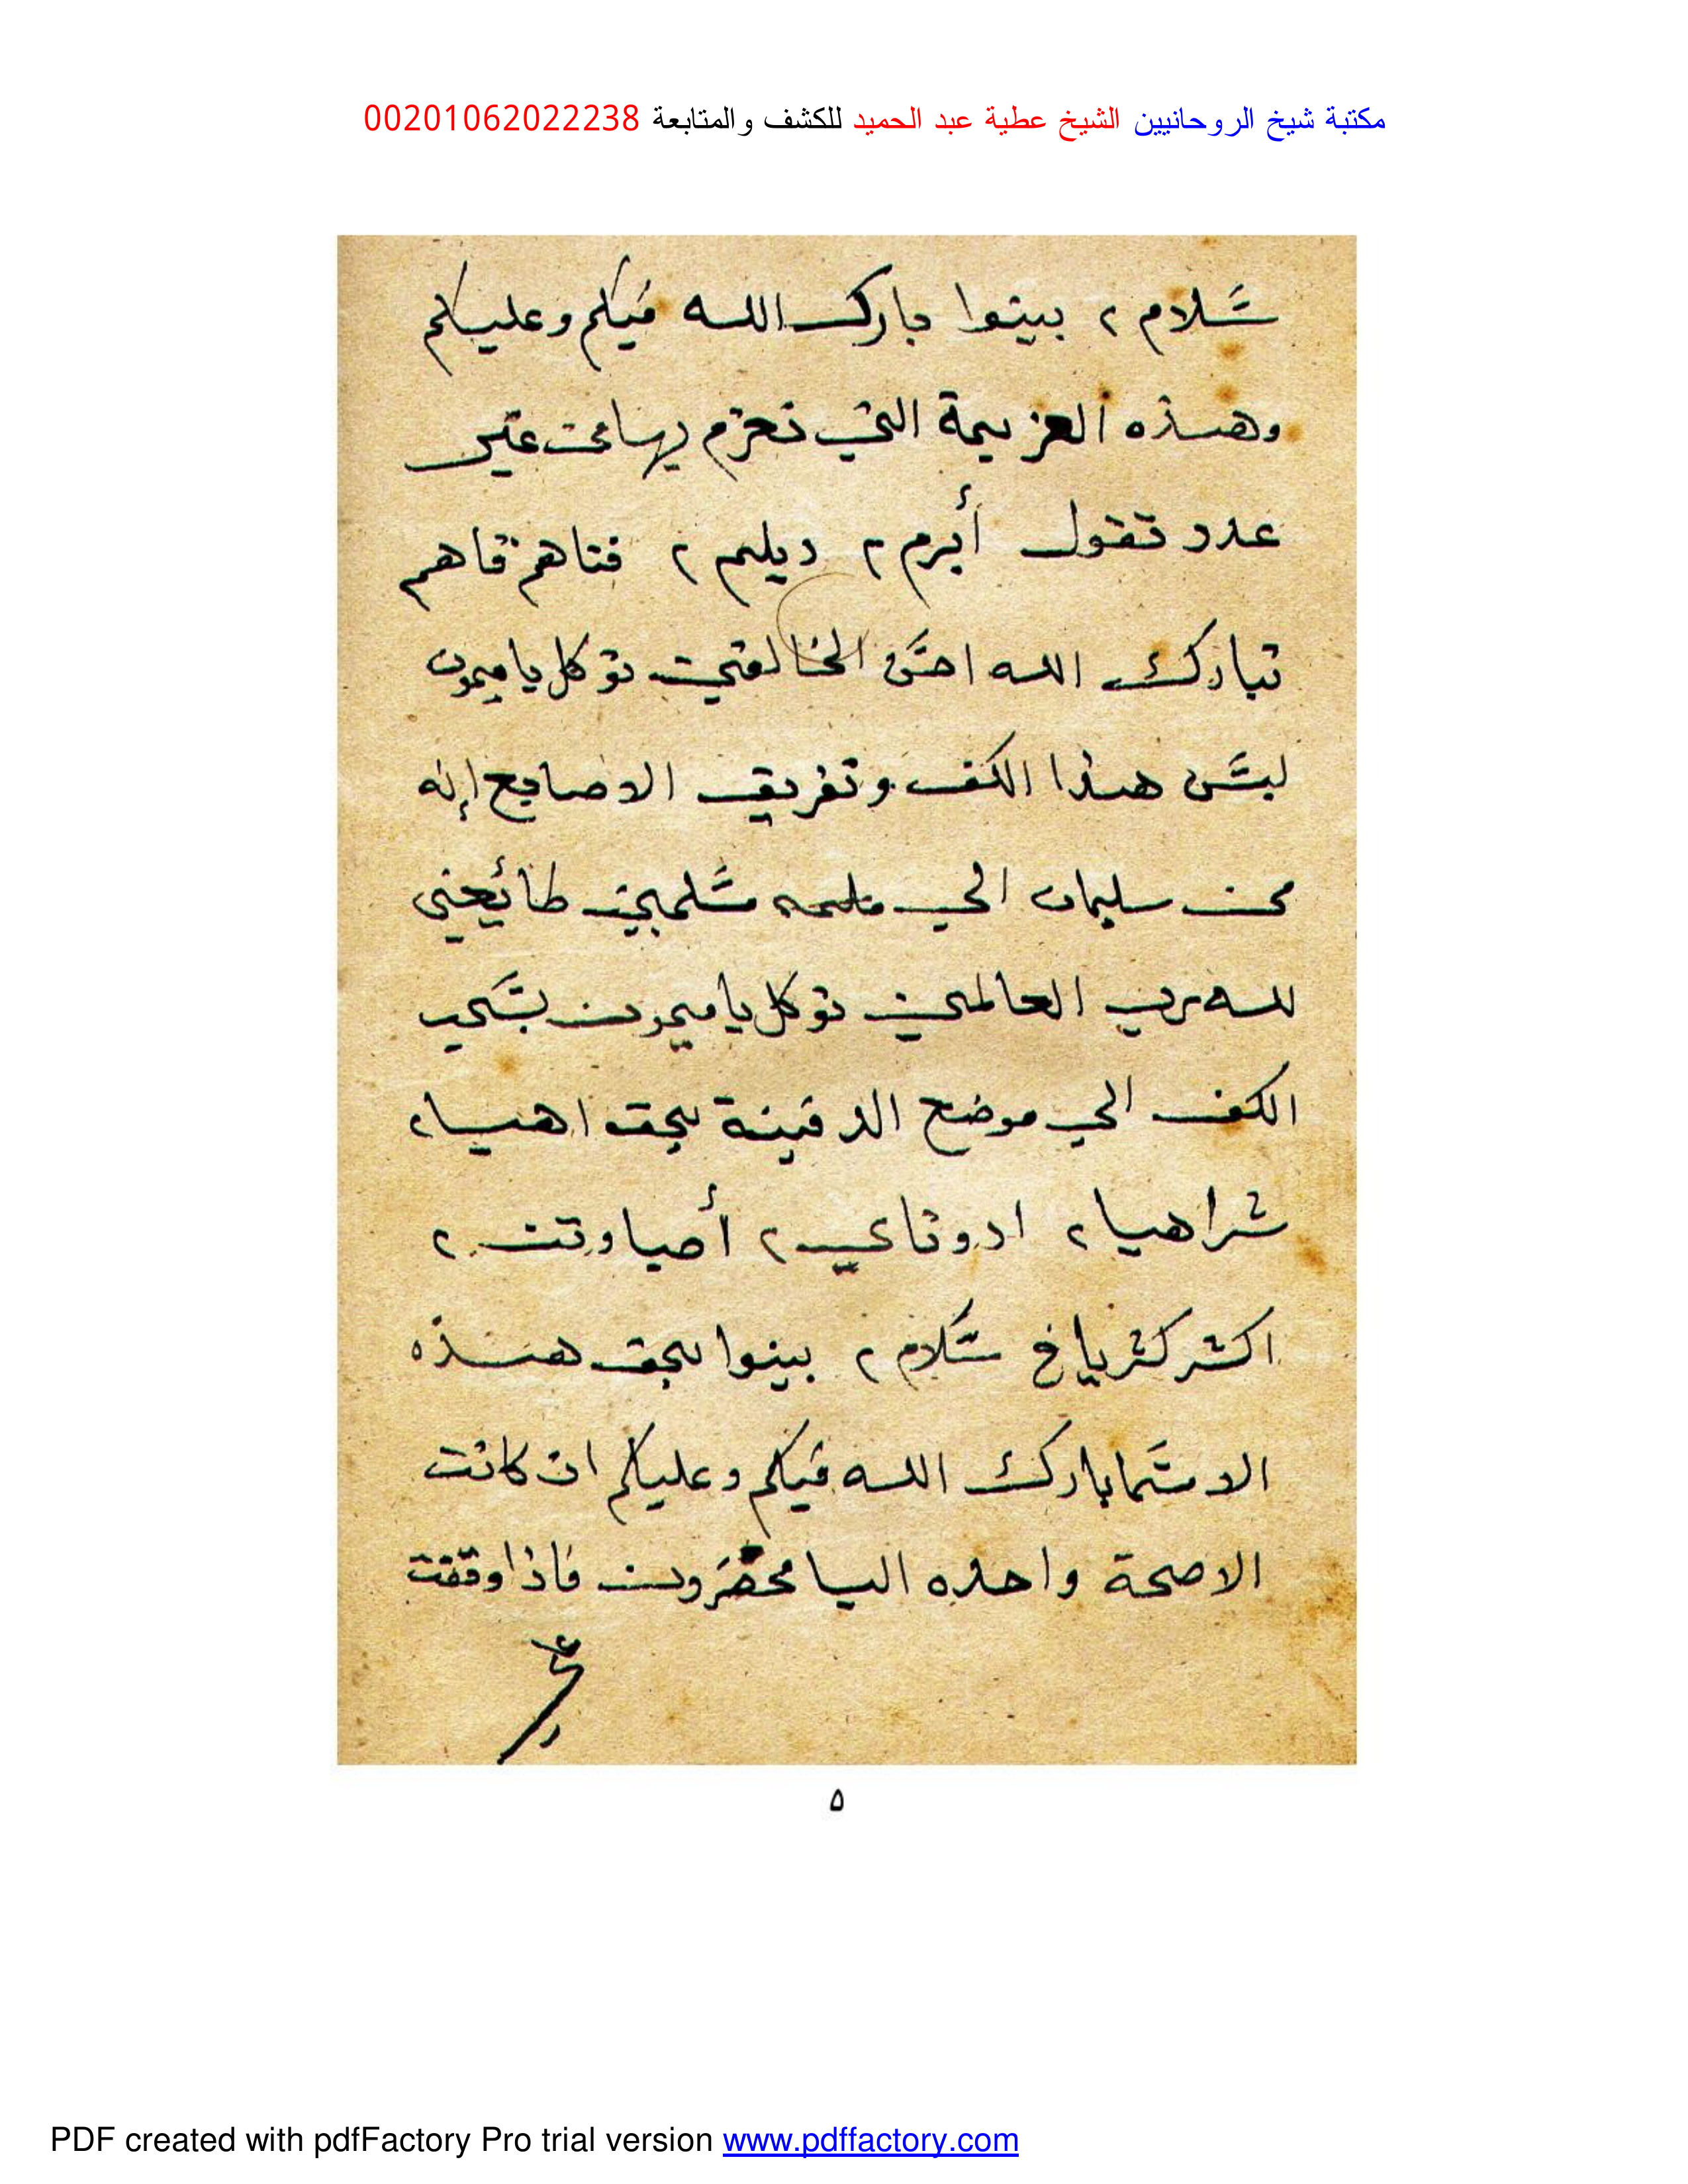 مكتبة شيخ الروحانيين الشيخ عطية عبد الحميد للكشف والمتابعة 00201062022238
سلام ٢ بينوا بارك الله فيكم وعليكم
وهذه العزيمة التي تعزم بها من غير
عدد تقول أبرم ٢ ديلم ٢ فتاهم قاهم
تبارك الله احسن الخالقين توكل يا ميمون
لبسن هذا الكف وتفريق الاصابع إنه
من سليمان الى مسلمين طائعين
لله رب العالمين توكل يا ميمون بسحب
الكف الى موضع الدفينة بحق اهيا ٢
شراهيا ٢ ادوناي ٢ أصباوت ٢
اكشر كشرياخ سلام ٢ بينوا بحق هذه
الاسما بارك الله فيكم وعليكم ان كانت
الا صحة واحده الينا محضرون فاذا وقفت
٥
PDF created with pdfFactory Pro trial version www.pdffactory.com